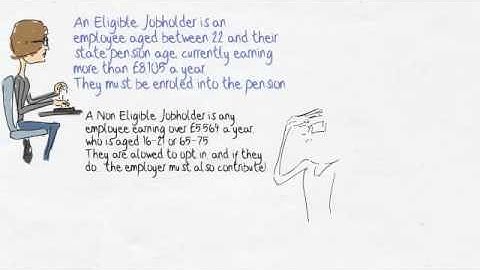 An Eligible Jobholder is an
employee aged between 22 and their
state pension age, currently earning
more than £8105 a year
They must be enroled into the pension
A Non Eligible Jobholder is any
employee earning over £5564 a year
who is aged 16-21 or 65-75
They are alowed to opt in, and if they
do the employer must also contribute